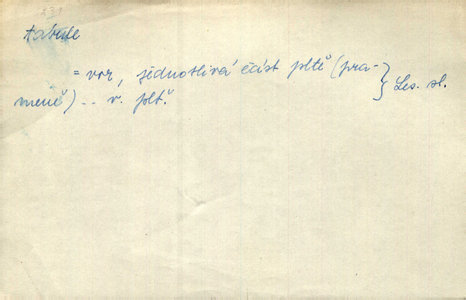 231
tabule
= vor, jednotlivá část pltě (pra-
mene) -- v. plť.
} Les. sl.